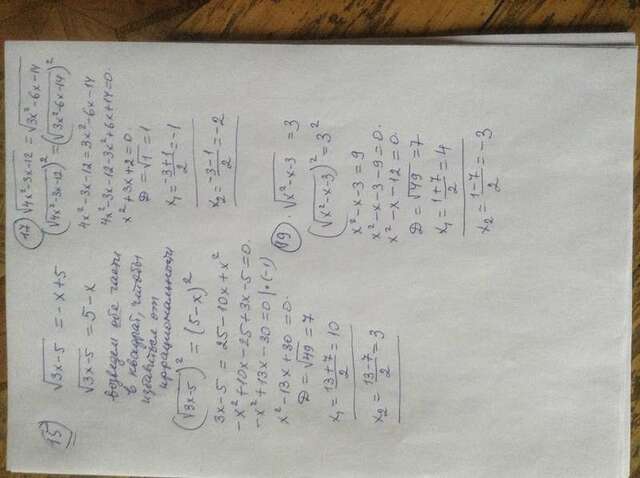 15) √(3x-5) = -x+5
√(3x-5) = 5-x
возведем обе части
в квадрат, чтобы
избавиться от
иррациональности
(√(3x-5))² = (5-x)²
3x-5 = 25-10x+x²
-x²+10x-25+3x-5=0.
-x²+13x-30=0 |·(-1)
x²-13x+30=0.
D=√49=7
x₁=(13+7)/2=10
x₂=(13-7)/2=3
17) √(4x²-3x-12) = √(3x²-6x-14)
(√(4x²-3x-12))²=(√(3x²-6x-14))²
4x²-3x-12=3x²-6x-14
4x²-3x-12-3x²+6x+14=0.
x²+3x+2=0.
D=√1=1
x₁=(-3+1)/2=-1
x₂=(-3-1)/2=-2
19). √(x²-x-3) = 3
(√(x²-x-3))²=3²
x²-x-3=9
x²-x-3-9=0.
x²-x-12=0.
D=√49=7
x₁=(1+7)/2=4
x₂=(1-7)/2=-3